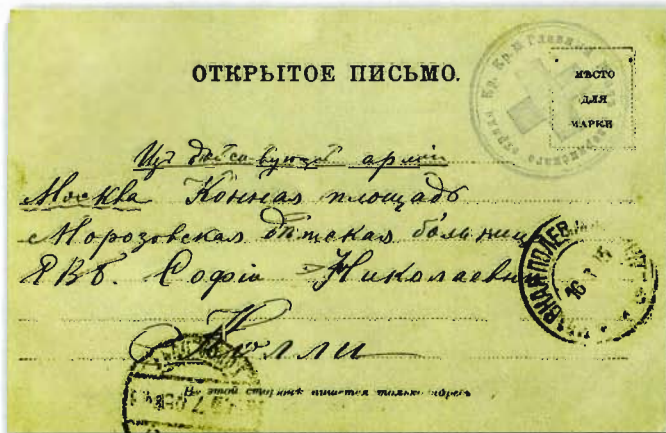 ОТКРЫТОЕ ПИСЬМО.
МѢСТО
ДЛЯ
МАРКИ
Изъ дѣйствующей арміи
Москва Конная площадь
Морозовская дѣтская больница
ЕВБ. Софіи Николаевнѣ
Келли
На этой сторонѣ пишется только адресъ